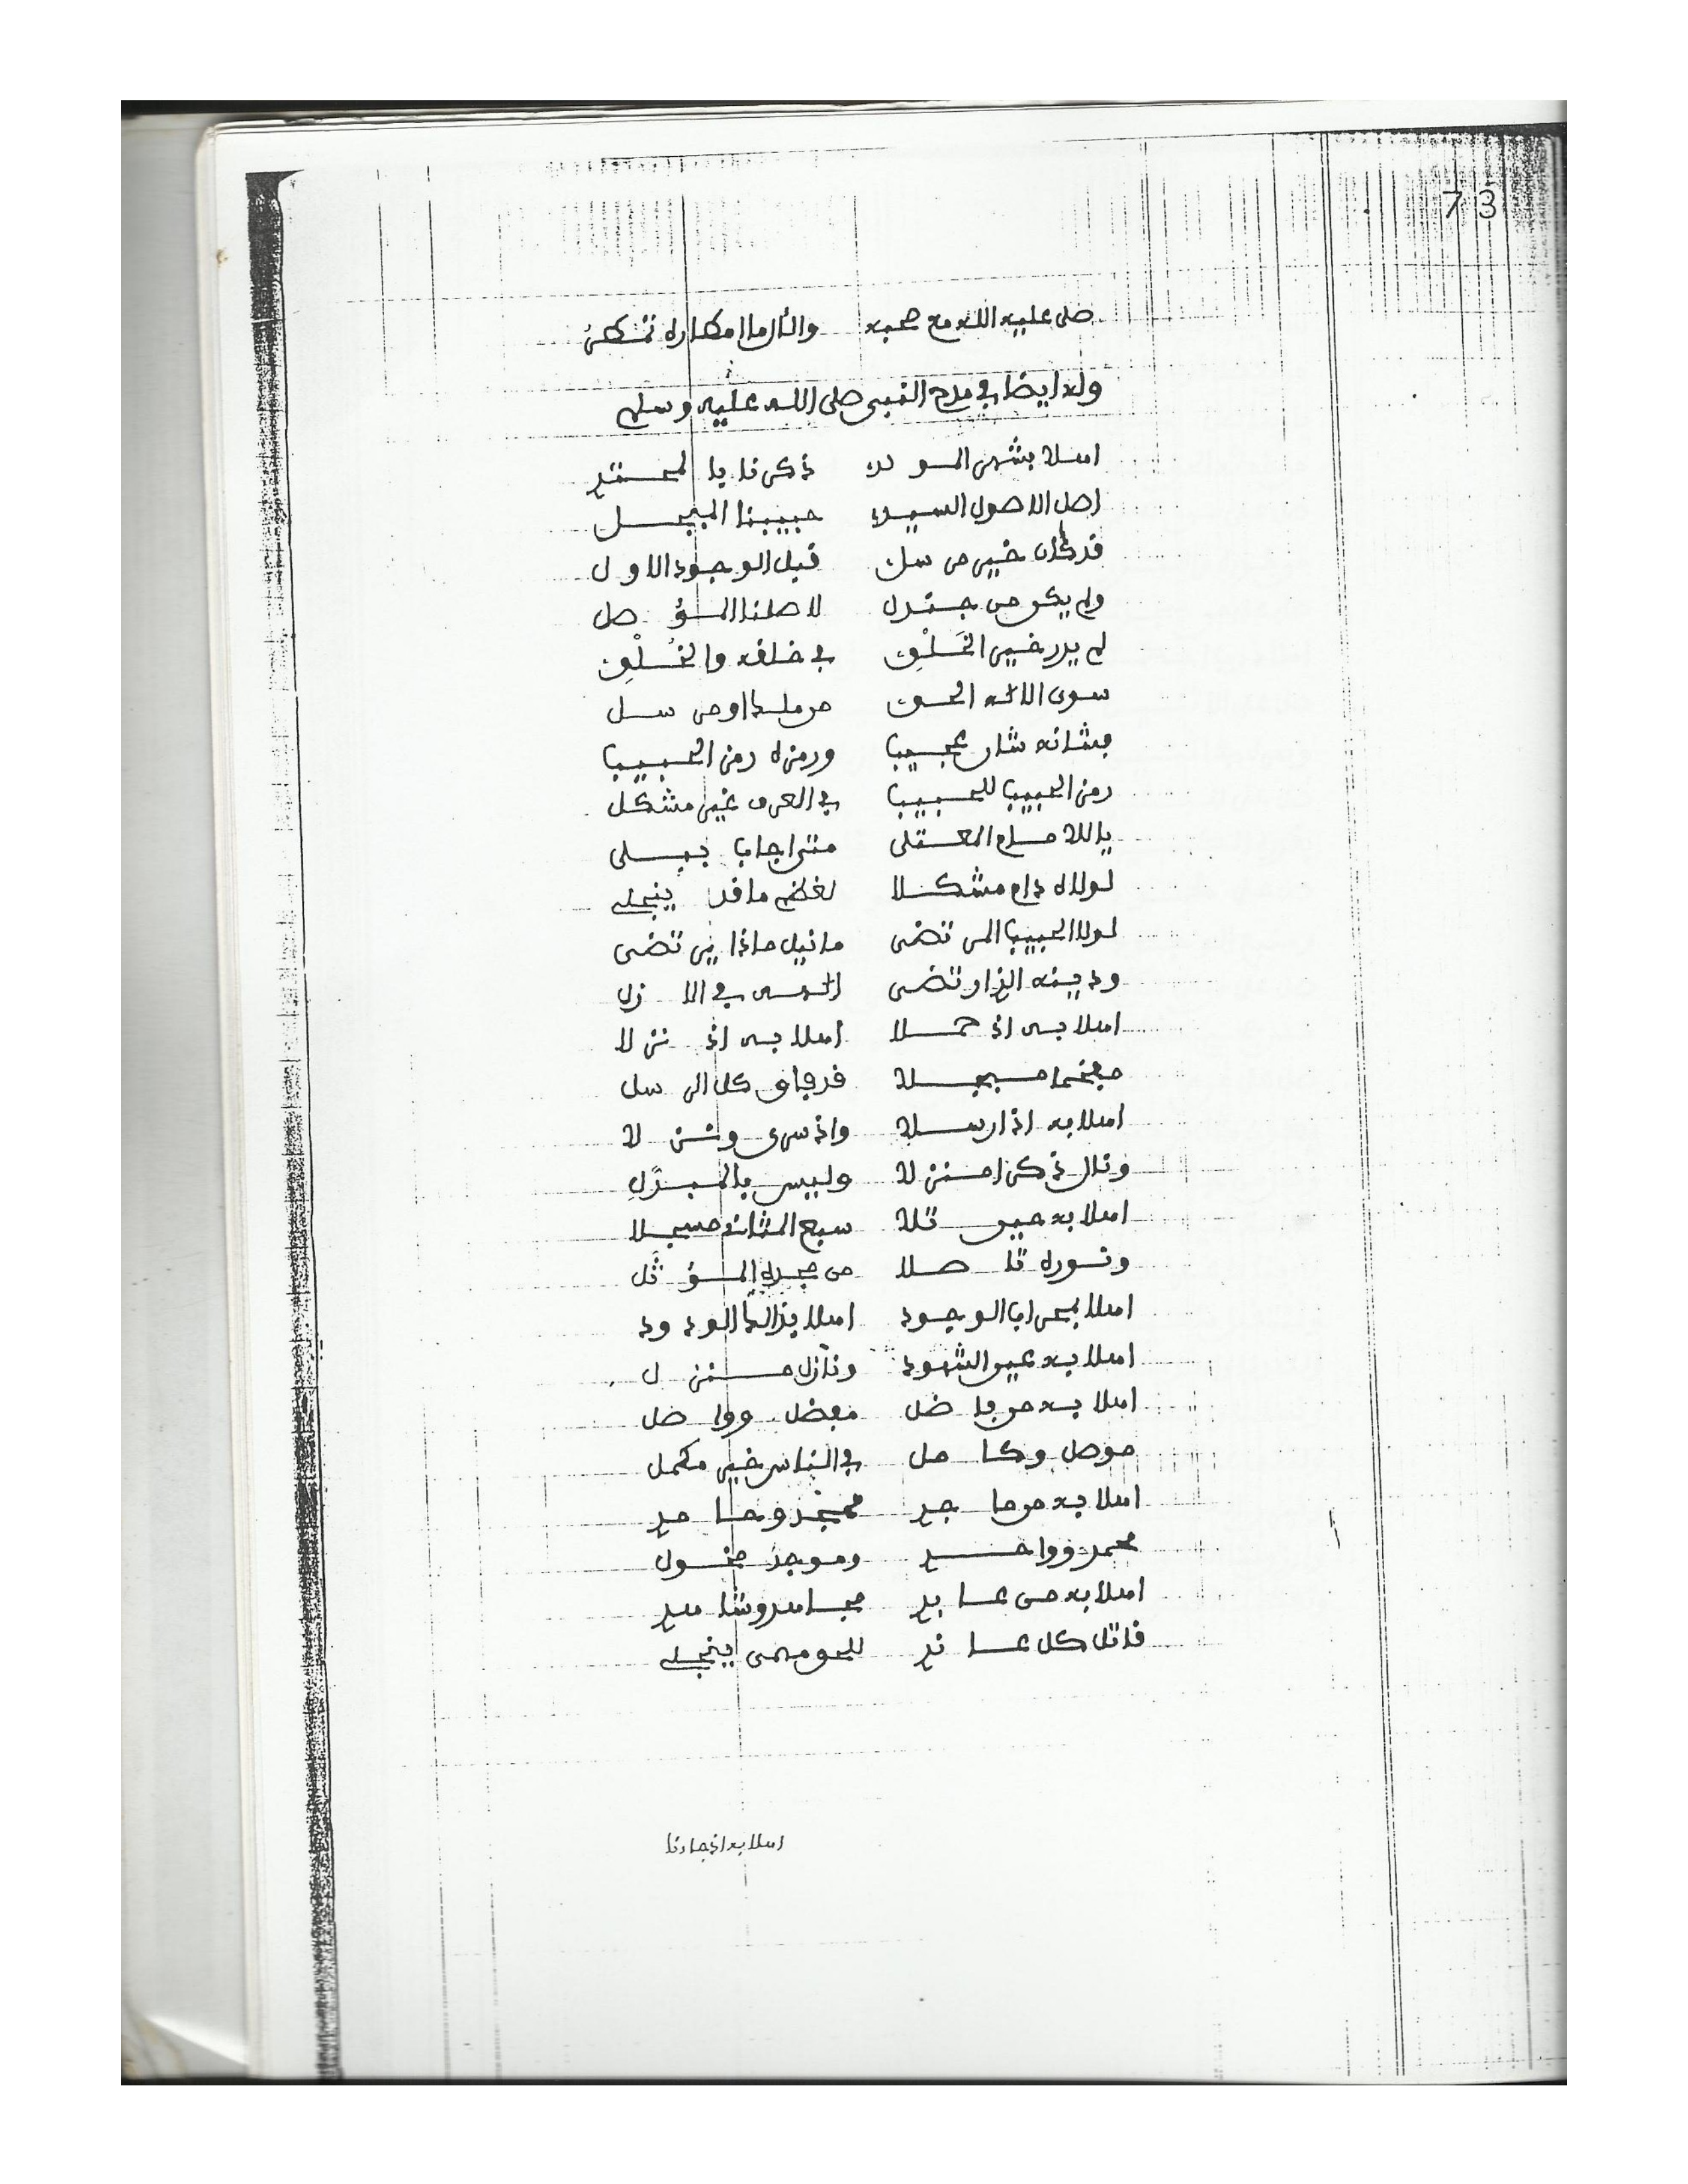 73
صلى عليه الله مع صحبه والآل ما امطاره تمطر
وله ايضا في مدح النبي صلى الله عليه وسلم
اهلا بشهر المولد ذكرنا يا
اصل الاصول السيد حبيبنا المبجل
قد كان خير مرسل قبل الوجود الاول
ولم يكن من جندل لاصلنا المؤصل
لم يدر خير الخَلْقِ في خلقه والخُلْقِ
سوى الاله الحق من ملك او مرسل
فشانه شان عجيب ورمزه رمز الحبيب
رمز الحبيب للحبيب في العرف غير مشكل
يا للاله المعتلى متى اجاب ببلى
لولاه دام مشكلا لغطم ما قد ينجلي
لولا الحبيب المرتضى ما نيل ماذا يرتضى
ودينه الذ ارتضى الهنا في الازل
اهلا به اذ حملا اهلا به اذ نزلا
مفخما مبجلا قد فاق كل الرسل
اهلا به اذ ارسلا واذ سرى ونزلا
ونال ذكرا منزلا وليس بالمبدّلِ
اهلا به حين تلا سبع المثاني مسجلا
ونوره تاصلا من مجده المؤثَّل
اهلا بمحراب الوجود اهلا بذاك الودود
اهلا به عين الشهود ونازل منزل
اهلا به من فاضل مفضل وواصل
موصل وكامل في الناس خير مكمل
اهلا به من ماجد ممجد وحامد
محمد وواجد وموجد مخول
اهلا به من عابد مجاهد وشاهد
قاتل كل عاند للحق مهمى ينجلي
اهلا به اذ جاءنا